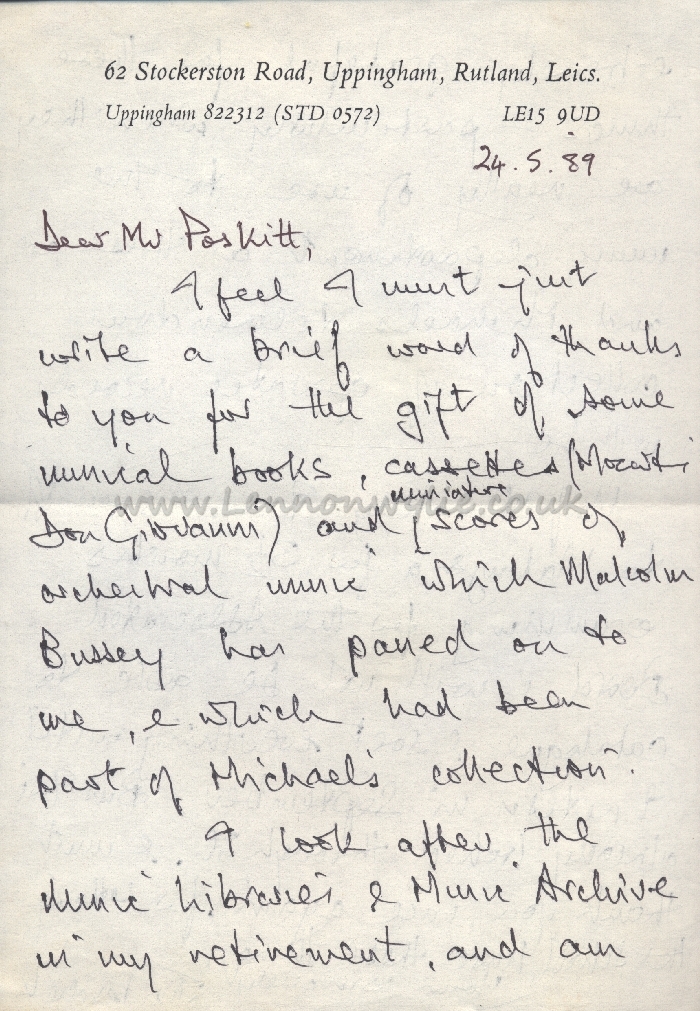 62 Stockerston Road, Uppingham, Rutland, Leics.
Uppingham 822312 (STD 0572) LE15 9UD
24.5.89
Dear Mr Poskitt,
I feel I must just
write a brief word of thanks
to you for the gift of some
musical books, cassettes (Mozart's
Don Giovanni) and miniature scores of
orchestral music which Malcolm
Bussey has passed on to
me, & which had been
part of Michael's collection.
I look after the
Music Libraries & Music Archive
in my retirement, and am
www.Lennonwylie.co.uk